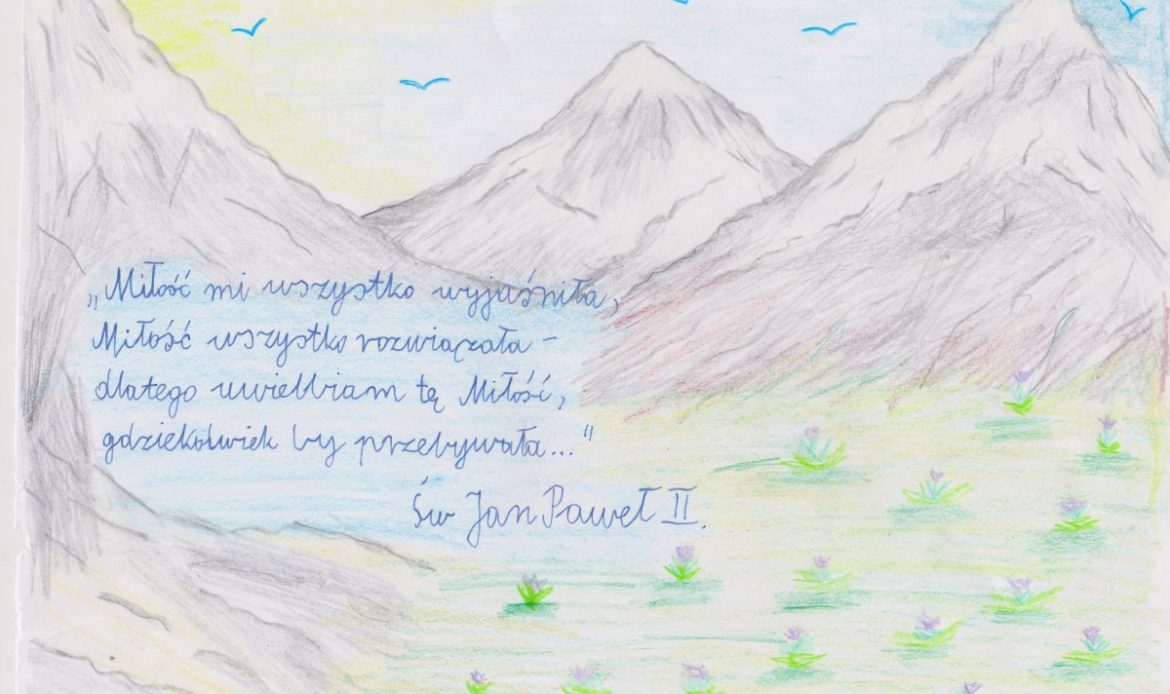 „Miłość mi wszystko wyjaśniła,
Miłość wszystko rozwiązała -
dlatego uwielbiam tę Miłość,
gdziekolwiek by przebywała..."
Św Jan Paweł II.